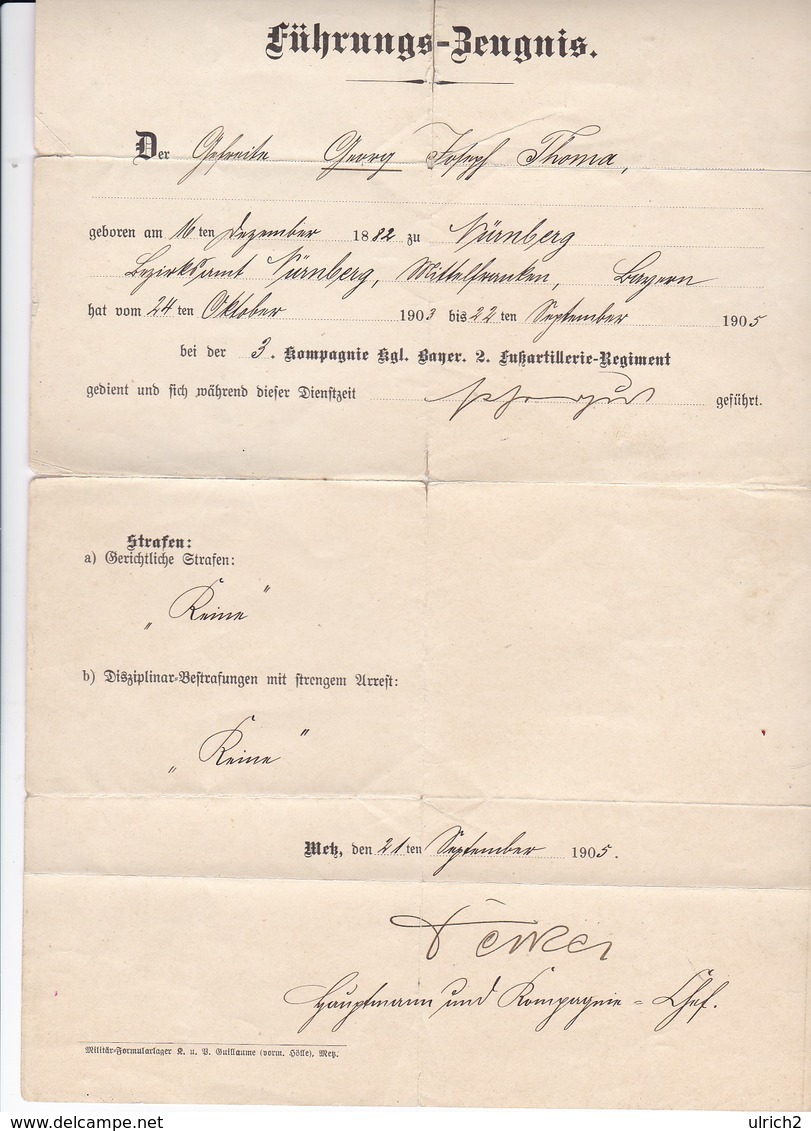 Führungs-Zeugnis.
Der Gefreite Georg Joseph Thoma,
geboren am 16ten Dezember 1882 zu Nürnberg
Bezirksamt Nürnberg, Mittelfranken, Bayern
hat vom 24ten Oktober 1903 bis 22ten September 1905
bei der 3. Kompagnie Kgl. Bayer. 2. Fußartillerie-Regiment
gedient und sich während dieser Dienstzeit sehr gut geführt.
Strafen:
a) Gerichtliche Strafen:
„Keine"
b) Disziplinar-Bestrafungen mit strengem Arrest:
„Keine"
Metz, den 21ten September 1905.
Hauptmann und Kompagnie-Chef.
Militär-Formularlager K. u. V. Guillaume (vorm. Hölle), Metz.
ulrich2